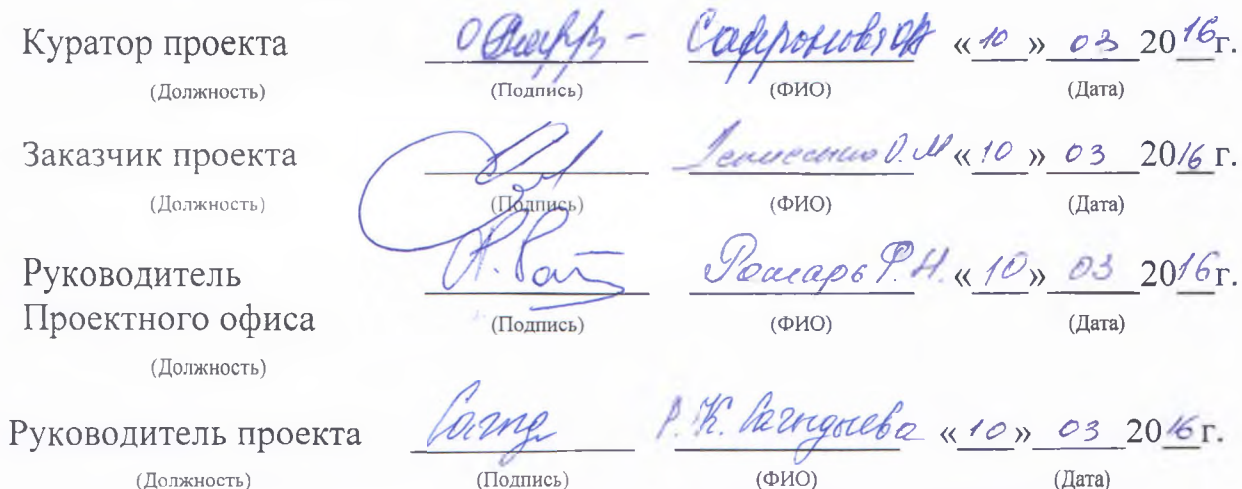 Куратор проекта « 10 » 03 2016г.
(Должность) (Подпись) (ФИО) (Дата)
Заказчик проекта О.М « 10 » 03 2016 г.
(Должность) (Подпись) (ФИО) (Дата)
Руководитель
Проектного офиса Р.Н. « 10 » 03 2016г.
(Подпись) (ФИО) (Дата)
(Должность)
Руководитель проекта Сагид Р.К. Сагидуева « 10 » 03 2016 г.
(Должность) (Подпись) (ФИО) (Дата)